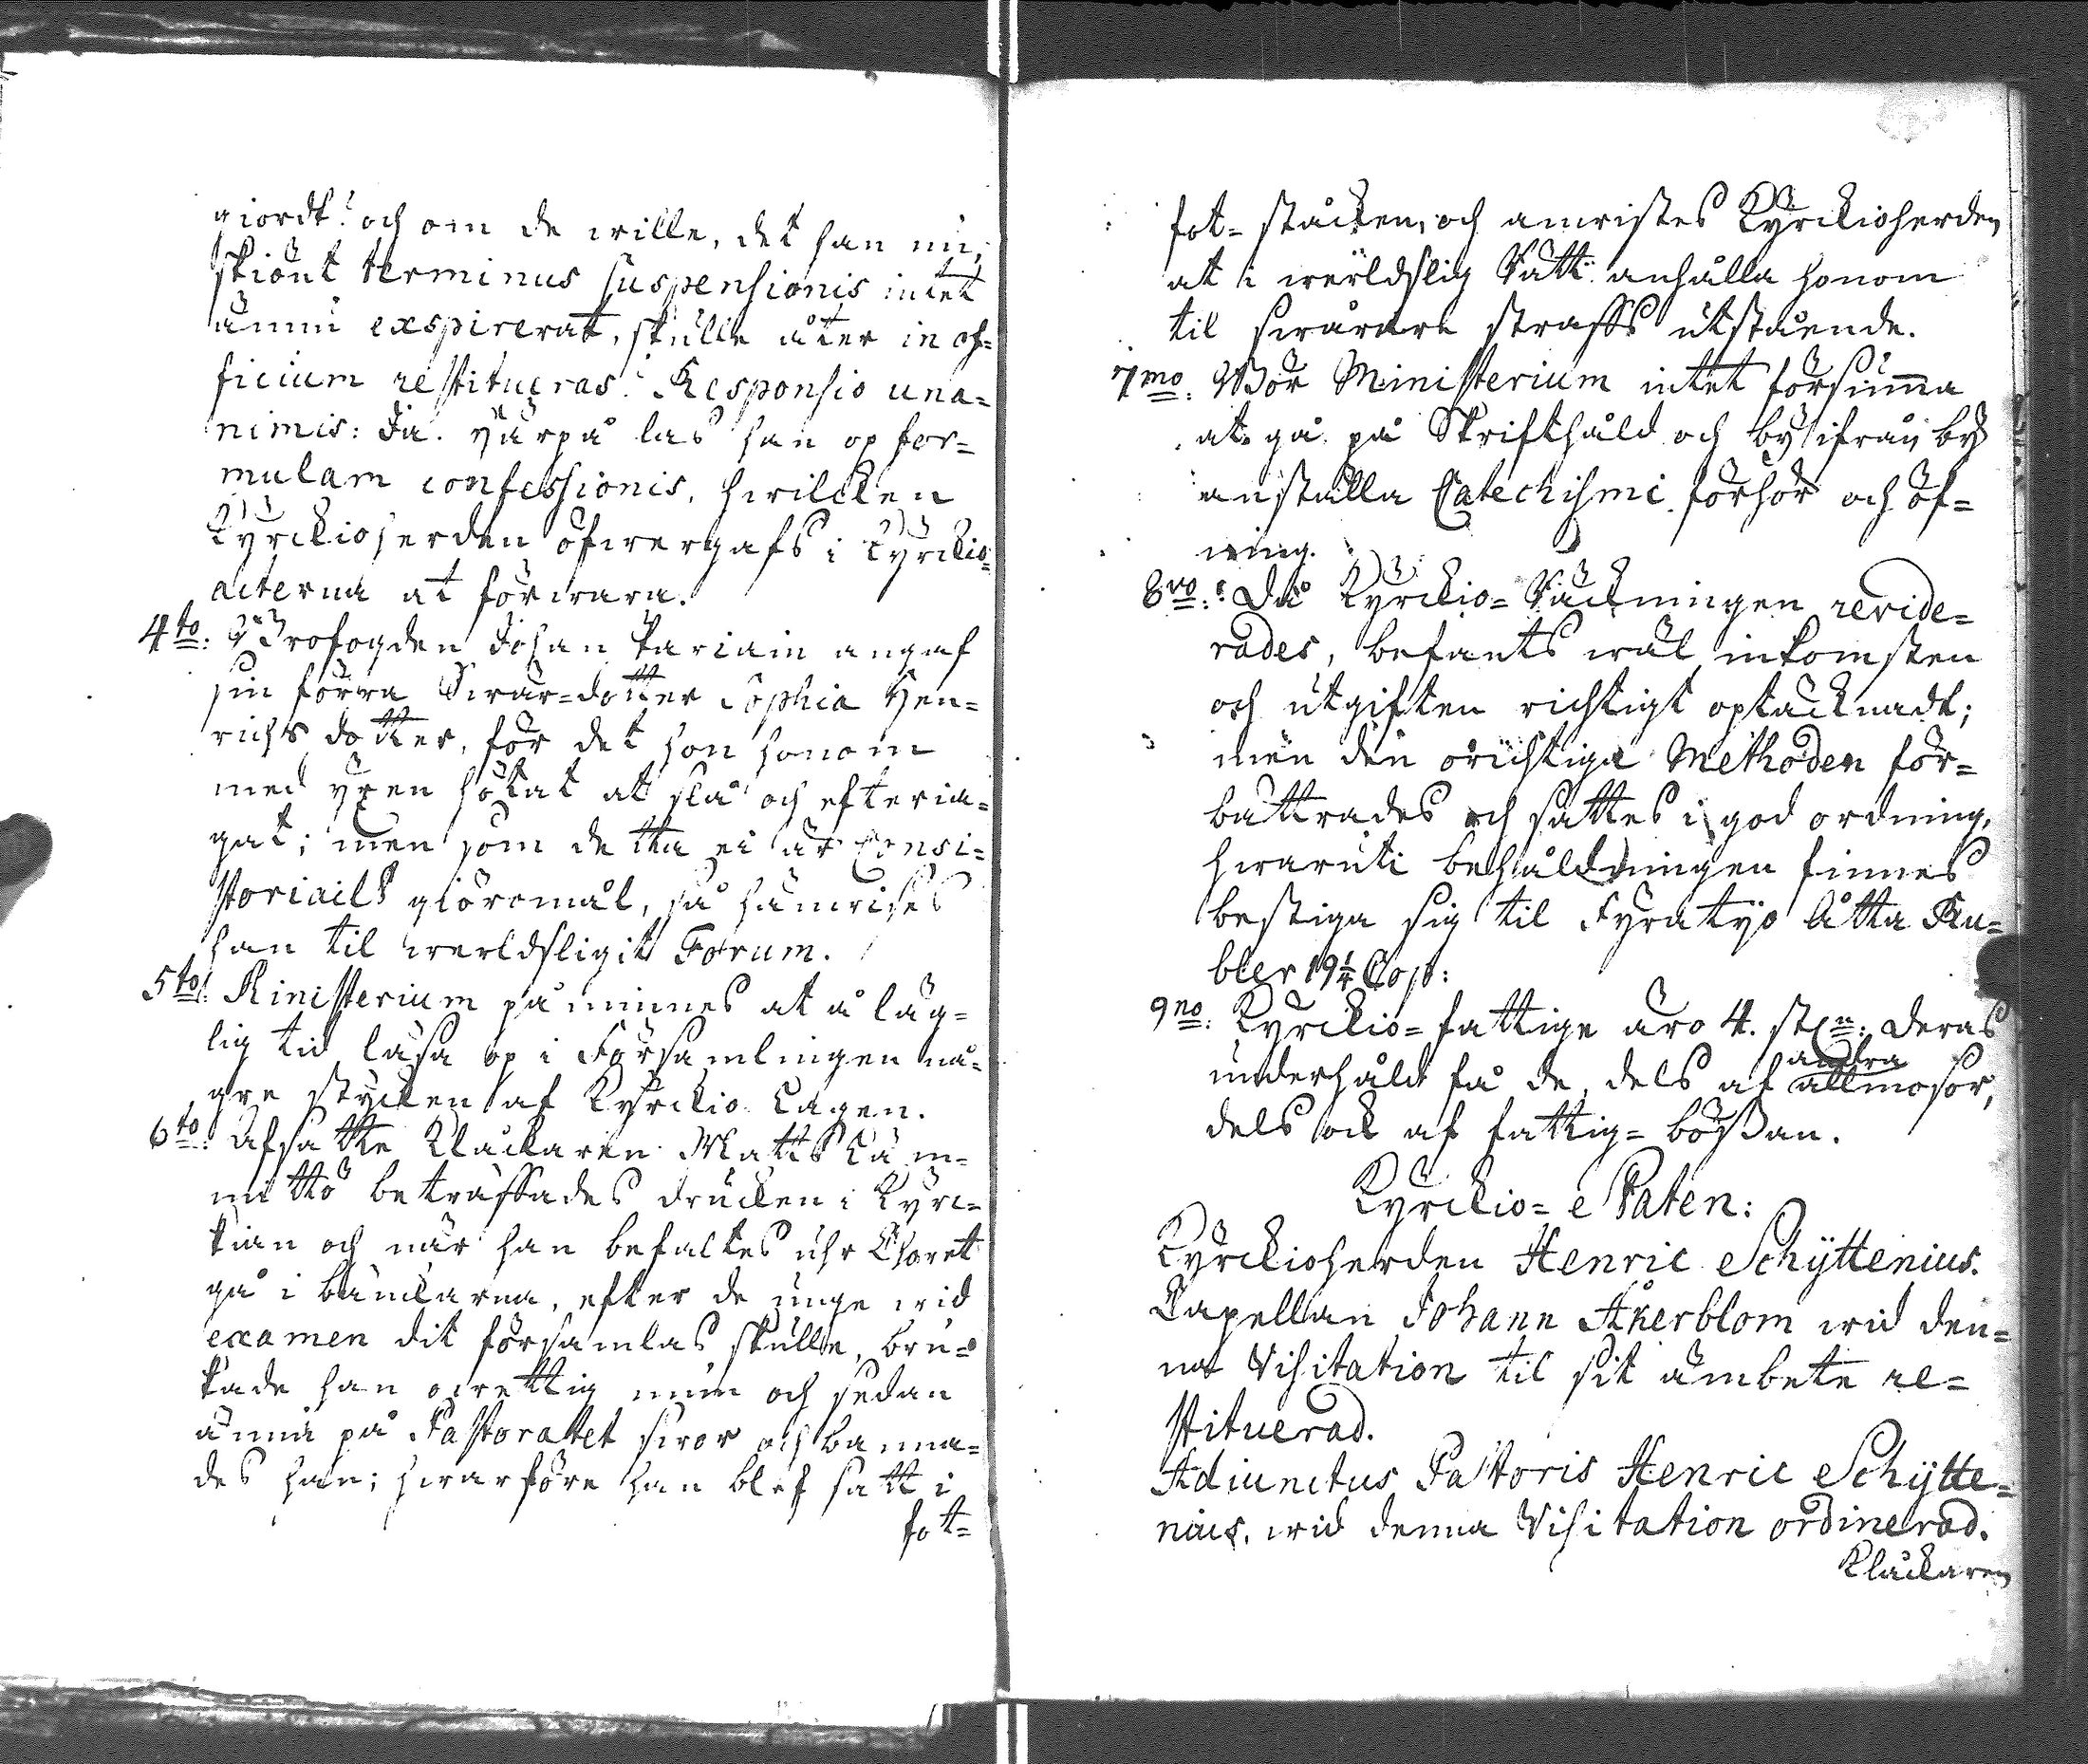 giordt? och om de wille, det han nu,
skiönt terminus suspensionis intet
ännu exspirerat, skulle åter in of-
ficium restitueras? Responsio una-
nimis: Ja. Härpå las han op for-
mulam confessionis, hwilcken
Kyrckioherden öfwergafs i Kyrckio-
acterna at förwara.
4to: Brofogden Johan Pariain angaf
sin förra Swär-dotter Sophia Hen-
richs dotter, för det hon honom
med yxen hötat at slå och efteria-
gat; men som detta ei är Consi-
storiails giöromål, så hänwises
han til werldsligit Forum.
5to: Ministerium påminnes at å läg-
lig tid läsa op i Församlingen nå-
gre stycken af Kyrckio Lagen.
6to: Afsatte Klåckaren Matts Läm-
mittö beträffades drucken i Kyrc-
kian och när han befaltes uhr Choret
gå i bänckarna, efter de unge wid
examen dit församlas skulle, bru-
kade han owettig mun och sedan
ännu på Pastoratet swor och banna-
des han; hwarföre han blef satt i
fot-
fot-ståcken, och anwistes Kyrckioherden
at i werldslig Rätt anhålla honom
til swårare straffs utstående.
7mo: Bör Ministerium intet försumma
at gå på Skrifthåld och by ifrån by
anställa Catechismi förhör och öf-
ning.
8vo: Då Kyrckio-Räckningen revide-
rades, befants wäl inkomsten
och utgiften richtigt optäcknadt;
men den orichtiga Methoden för-
bättrades och sattes i god ordning,
hwaruti behåldningen finnes
bestiga sig til Fyratyo Åtta Ru-
bler 19 1/4 Cop:
9no: Kyrckio-fattige äro 4. stn: Deras
underhåld få de, dels af andra allmosor,
dels ock af fattig-bößan.
Kyrckio-Staten:
Kyrckioherden Henric Schyttenius.
Capellan Johann Åkerblom wid den-
na Visitation til sit ämbete re-
stituerad.
Adiunctus Pastoris Henric Schytte-
nius, wid denna Visitation ordinerad.
Klåckaren